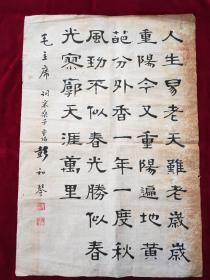 人生易老天難老歲歲
重陽今又重陽遍地黄
葩分外香一年一度秋
風勁不似春光勝似春
光寥廓天涯萬里
毛主席 词采桑子 彭初